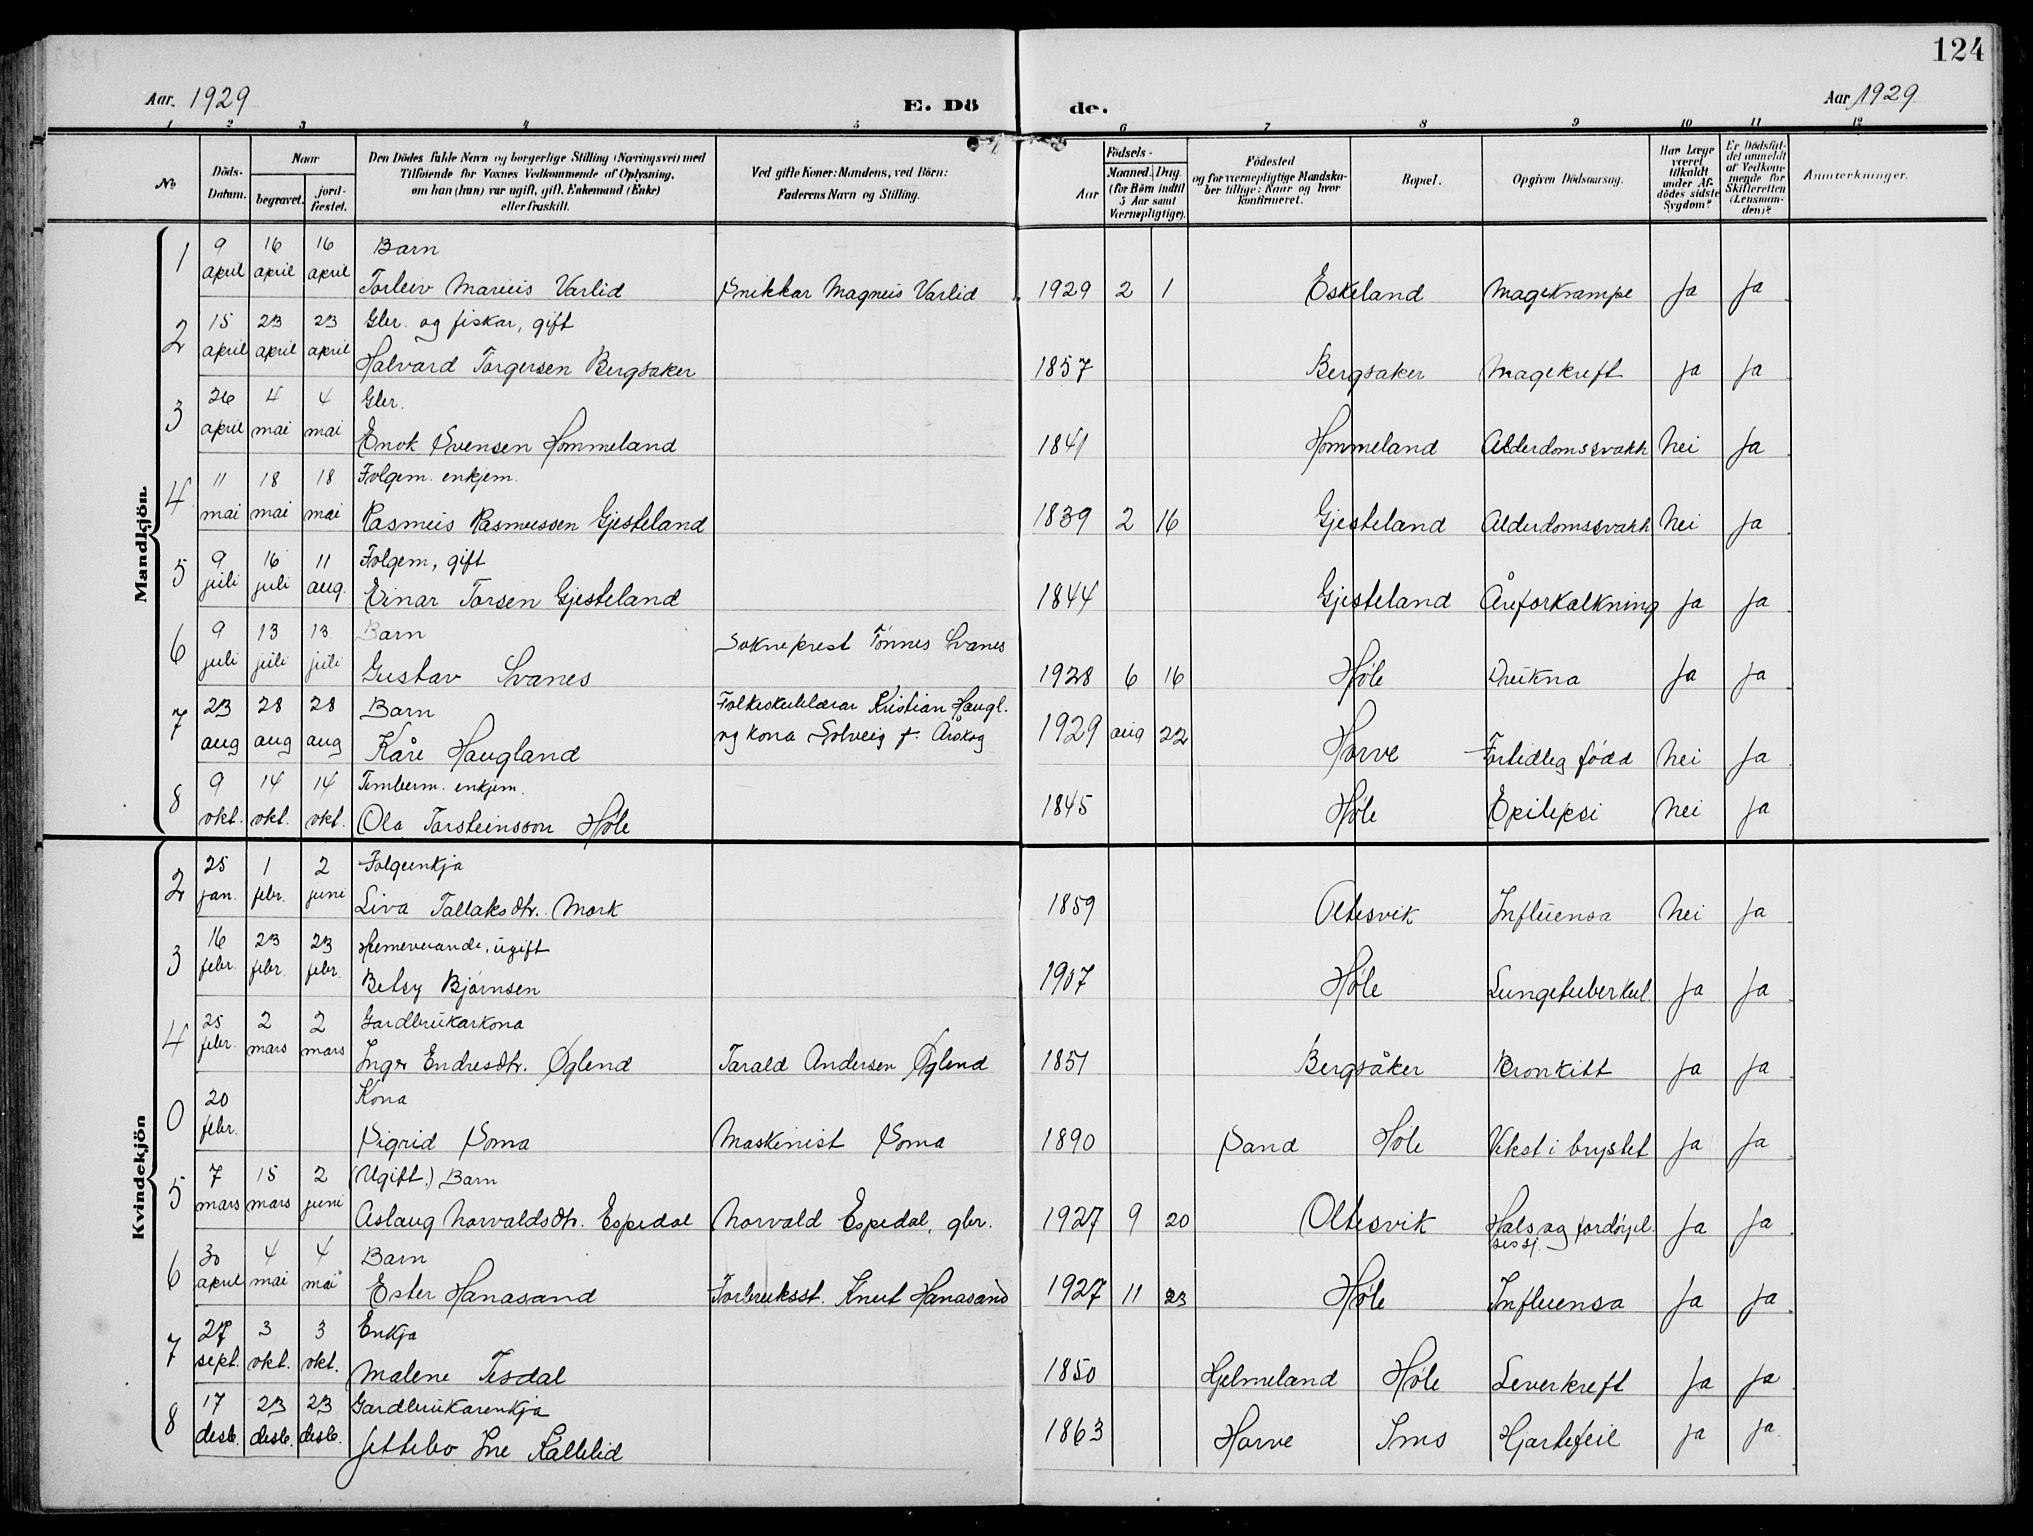 124
Aar. 1929
E. Dö
de.
Aar 1929
1 2 3 4 5 6 7 8 9 10 11 12
No
Döds-
Datum.
Naar
begravet.
jord-
fæstet.
Den Dödes fulde Navn og borgerlige Stilling (Næringsvei) med
Tilföiende for Voxnes Vedkommende af Oplysning,
om han (hun) var ugift, gift, Enkemand (Enke)
eller fraskilt.
Ved gifte Koner: Mandens, ved Börn:
Faderens Navn og Stilling.
Födsels-
Aar
Maaned. Dag
(for Börn indtil
5 Aar samt
Værnepligtige).
Födested
og for værnepligtige Mandska-
ber tillige: Naar og hvor
konfirmeret.
Bopæl.
Opgiven Dödsaarsag.
Har Læge
været
tilkaldt
under Af-
dödes sidste
Sygdom?
Er Dödsfal-
det anmeldt
af Vedkom-
mende for
Skifteretten
(Lensman-
den)?
Anmerkninger.
Mandkjön.
1 9 april 16 april 16 april Barn
Torleiv Marius Varlid Snikkar Magnus Varlid 1929 2 1 Eskeland Magekrampe Ja Ja
2 15 april 23 april 23 april Gbr. og fiskar, gift
Halvard Torgersen Bergsaker 1857 Bergsaker Magekreft Ja Ja
3 26 april 4 mai 4 mai Gbr.
Enok Svensen Hommeland 1841 Hommeland Alderdomssvakh Nei Ja
4 11 mai 18 mai 18 mai Folgem. enkjem.
Rasmus Rasmussen Gjesteland 1839 2 16 Gjesteland Alderdomssvakh Nei Ja
5 9 juli 16 juli 11 aug. Folgem, gift
Einar Torsen Gjesteland 1844 Gjesteland Åreforkalkning Ja Ja
6 9 juli 13 juli 13 juli Barn
Gustav Svanes Sokneprest Tønnes Svanes 1928 6 16 Høle Ja Ja
7 23 aug 28 aug 28 aug Barn
Kåre Haugland Folkeskulelærar Kristian Haugl.
og kona Solveig f. Årskog 1929 aug 22 Horve Fortidleg fødd Nei Ja
8 9 okt. 14 okt. 14 okt. Timberm. enkjem.
Ola Torsteinsson Høle 1845 Høle Epilepsi Nei Ja
Kvindekjön
2 25 jan. 1 febr. 2 juni Folgeenkja
Siva Tallaksdtr. Mork 1859 Oltesvik Influensa Nei Ja
3 16 febr. 23 febr. 23 febr. Hemeverande, ugift
Betsy Bjørnsen 1907 Høle Lungetuberkul. Ja Ja
4 25 febr. 2 mars 2 mars Gardbrukarkona
Inger Endresdtr. Øglend Tarald Andersen Øglend 1851 Bergsåker Bronkitt Ja Ja
0 20 febr. Kona
Sigrid Soma Maskinist Soma 1890 Sand Høle Vekst i brystet Ja Ja
5 7 mars 15 mars 2 juni (Ugift.) Barn
Aslaug Norvaldsdtr. Espedal Norvald Espedal, gbr. 1927 9 20 Oltesvik Hals og fordøyel.
sessj. Ja Ja
6 30 april 4 mai 4 mai Barn
Ester Hanasand Forbruksst. Knut Hanasand 1927 11 23 Høle Influensa Ja Ja
7 27 sept. 3 okt. 3 okt. Enkja
Malene Tisdal 1850 Hjelmeland Høle Leverkreft Ja Ja
8 17 desb. 23 desb. 23 desb. Gardbrukarenkja
Jettebo Ine Kallelid 1863 Horve Ims Hjartefeil Ja Ja